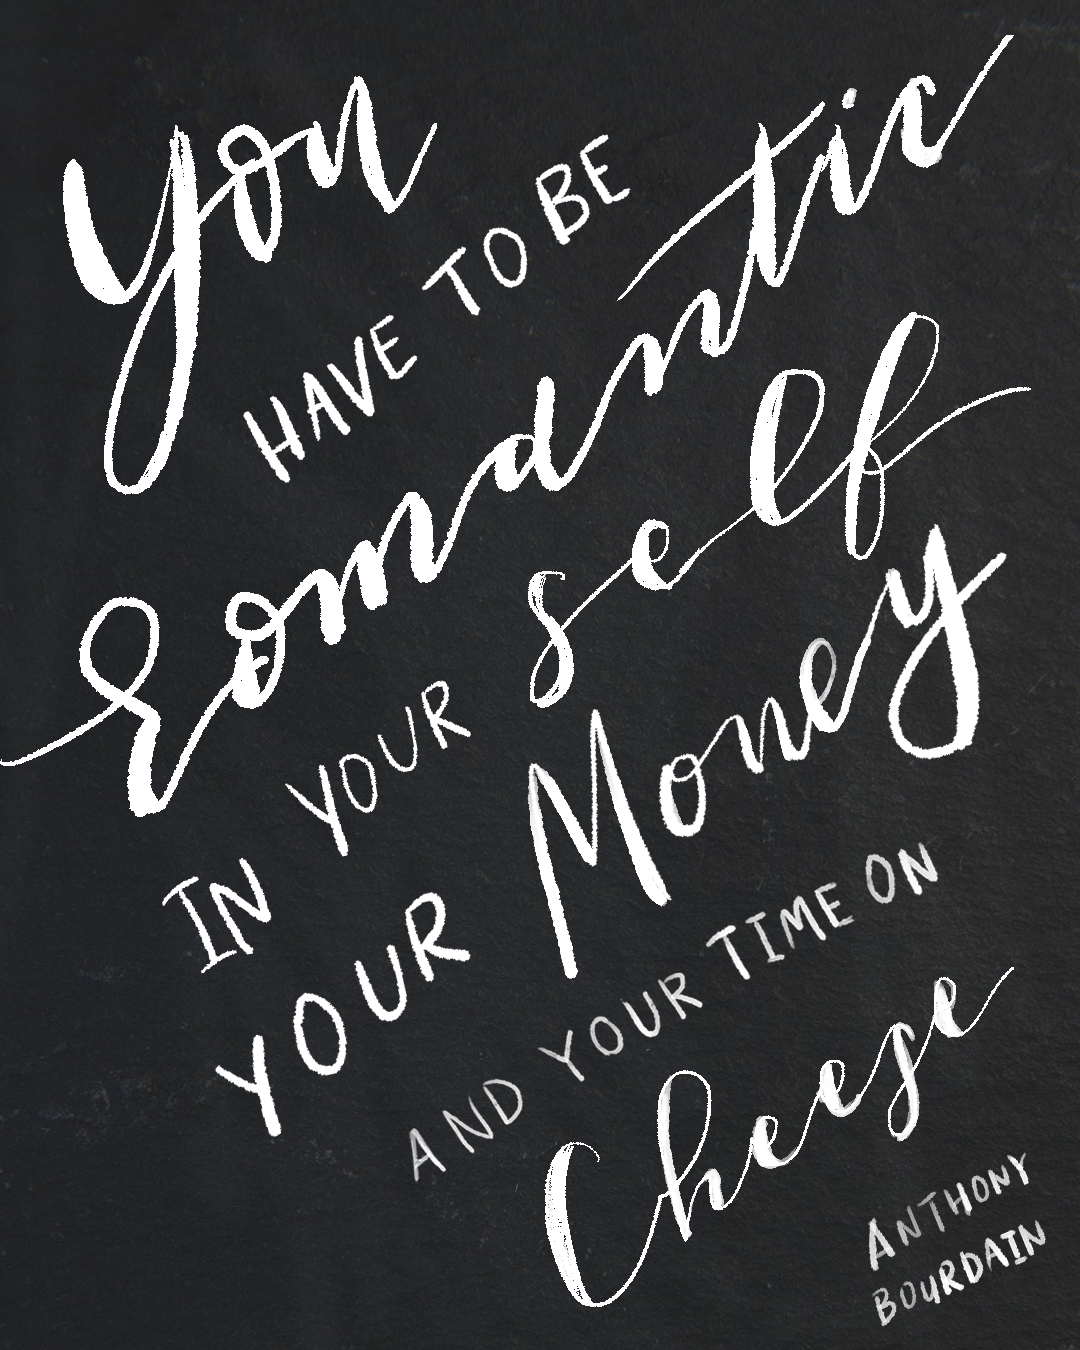 You
HAVE TO BE
Romantic
IN YOUR self
YOUR Money
AND YOUR TIME ON
Cheese
ANTHONY
BOURDAIN